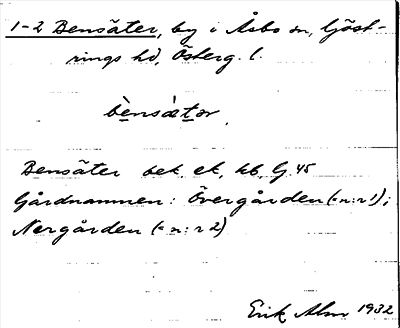 1-2 Bensäter, by i Åsbo sn, Göst-
rings hd, Österg. l.
bènsæ̀tər.
Bensäter bek. ek, kb, G. 45
Gårdnamnen: Övergården (= n:r 1);
Nergården (= n:r 2)
Erik Alm 1932